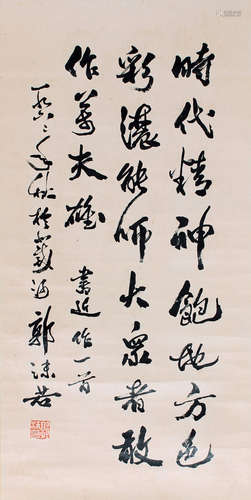 時代精神飽地方色
彩濃能師大衆者敢
作萬夫雄 書近作一首
一九六二年秋於 郭沫若